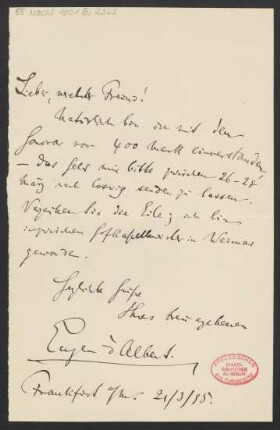 55 Nachl 101
Lieber, werther Freund!
Natürlich bin ich mit dem
Honorar von 400 Mark einverstanden
– das Geld mir bitte zwischen 26-28
März nach senden zu lassen.
Verzeihen Sie die Eile; ich bin
Hofkapellmeister in Weimar
geworden.
Herzliche Grüße
Ihres treu ergebenen
Eugen d'Albert.
Frankfurt a/M. 21/3/95.